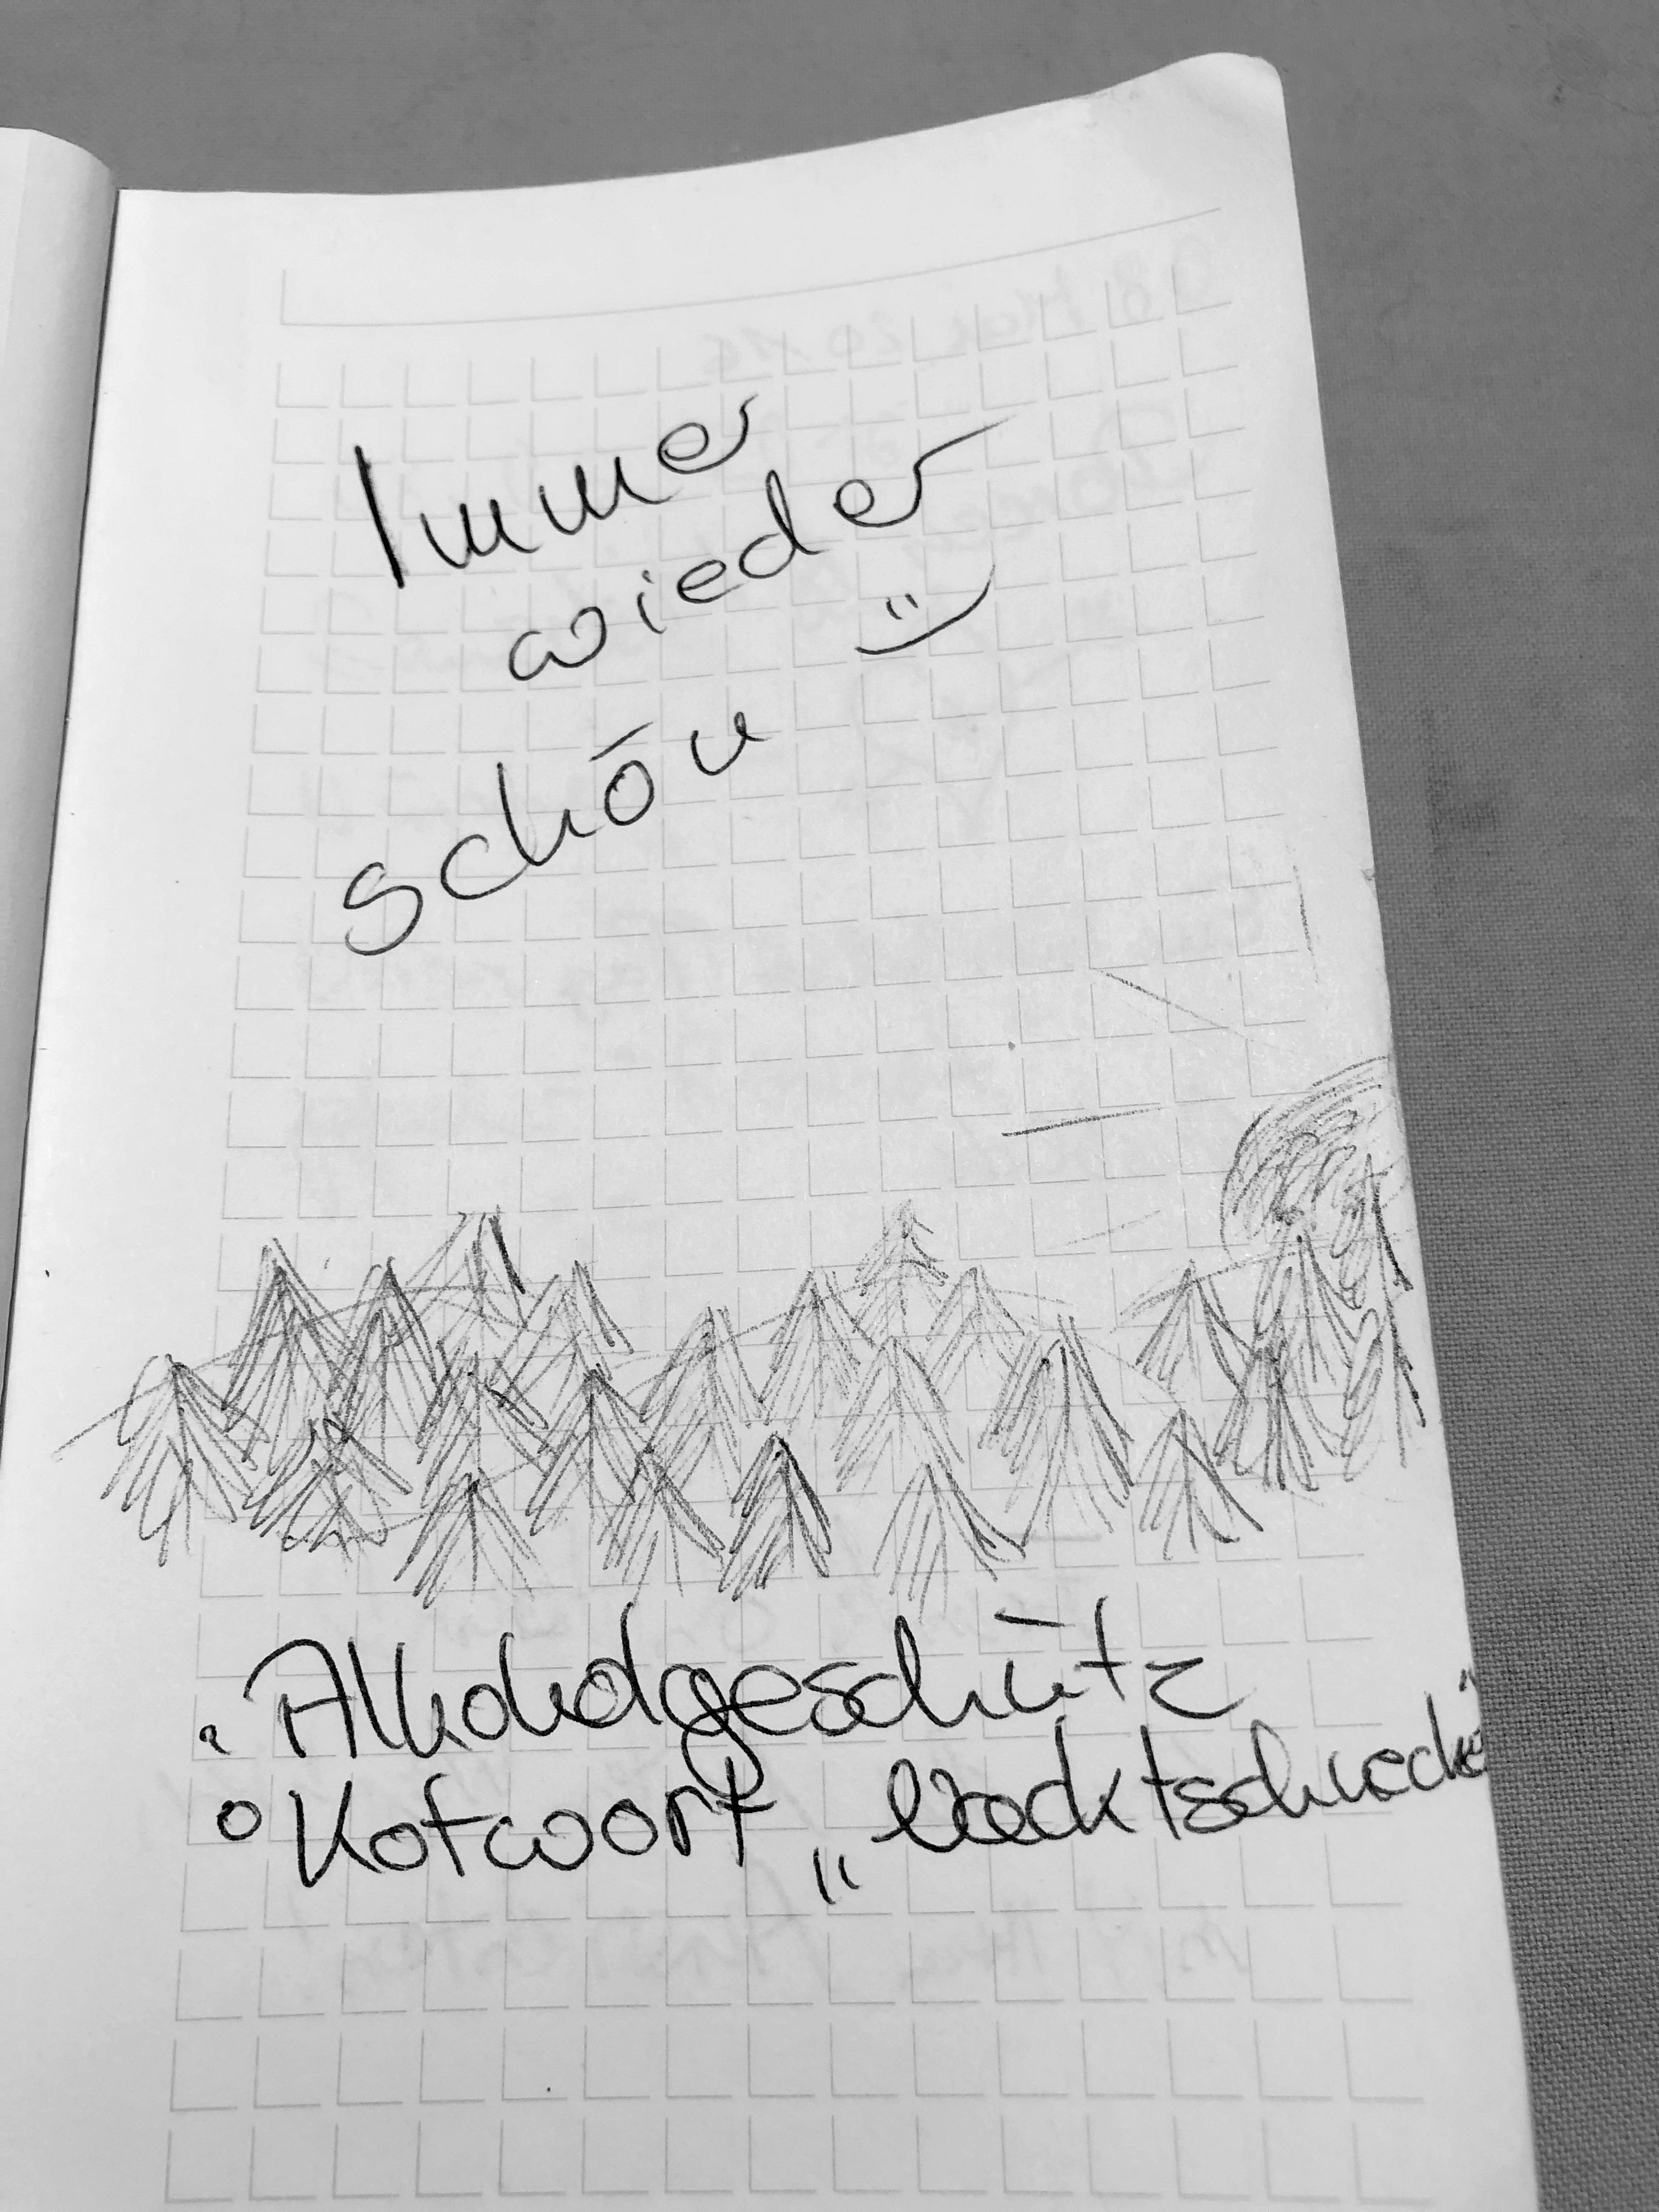 Immer
wieder
schön :)
• Alkoholgeschütz
° Kotwort „